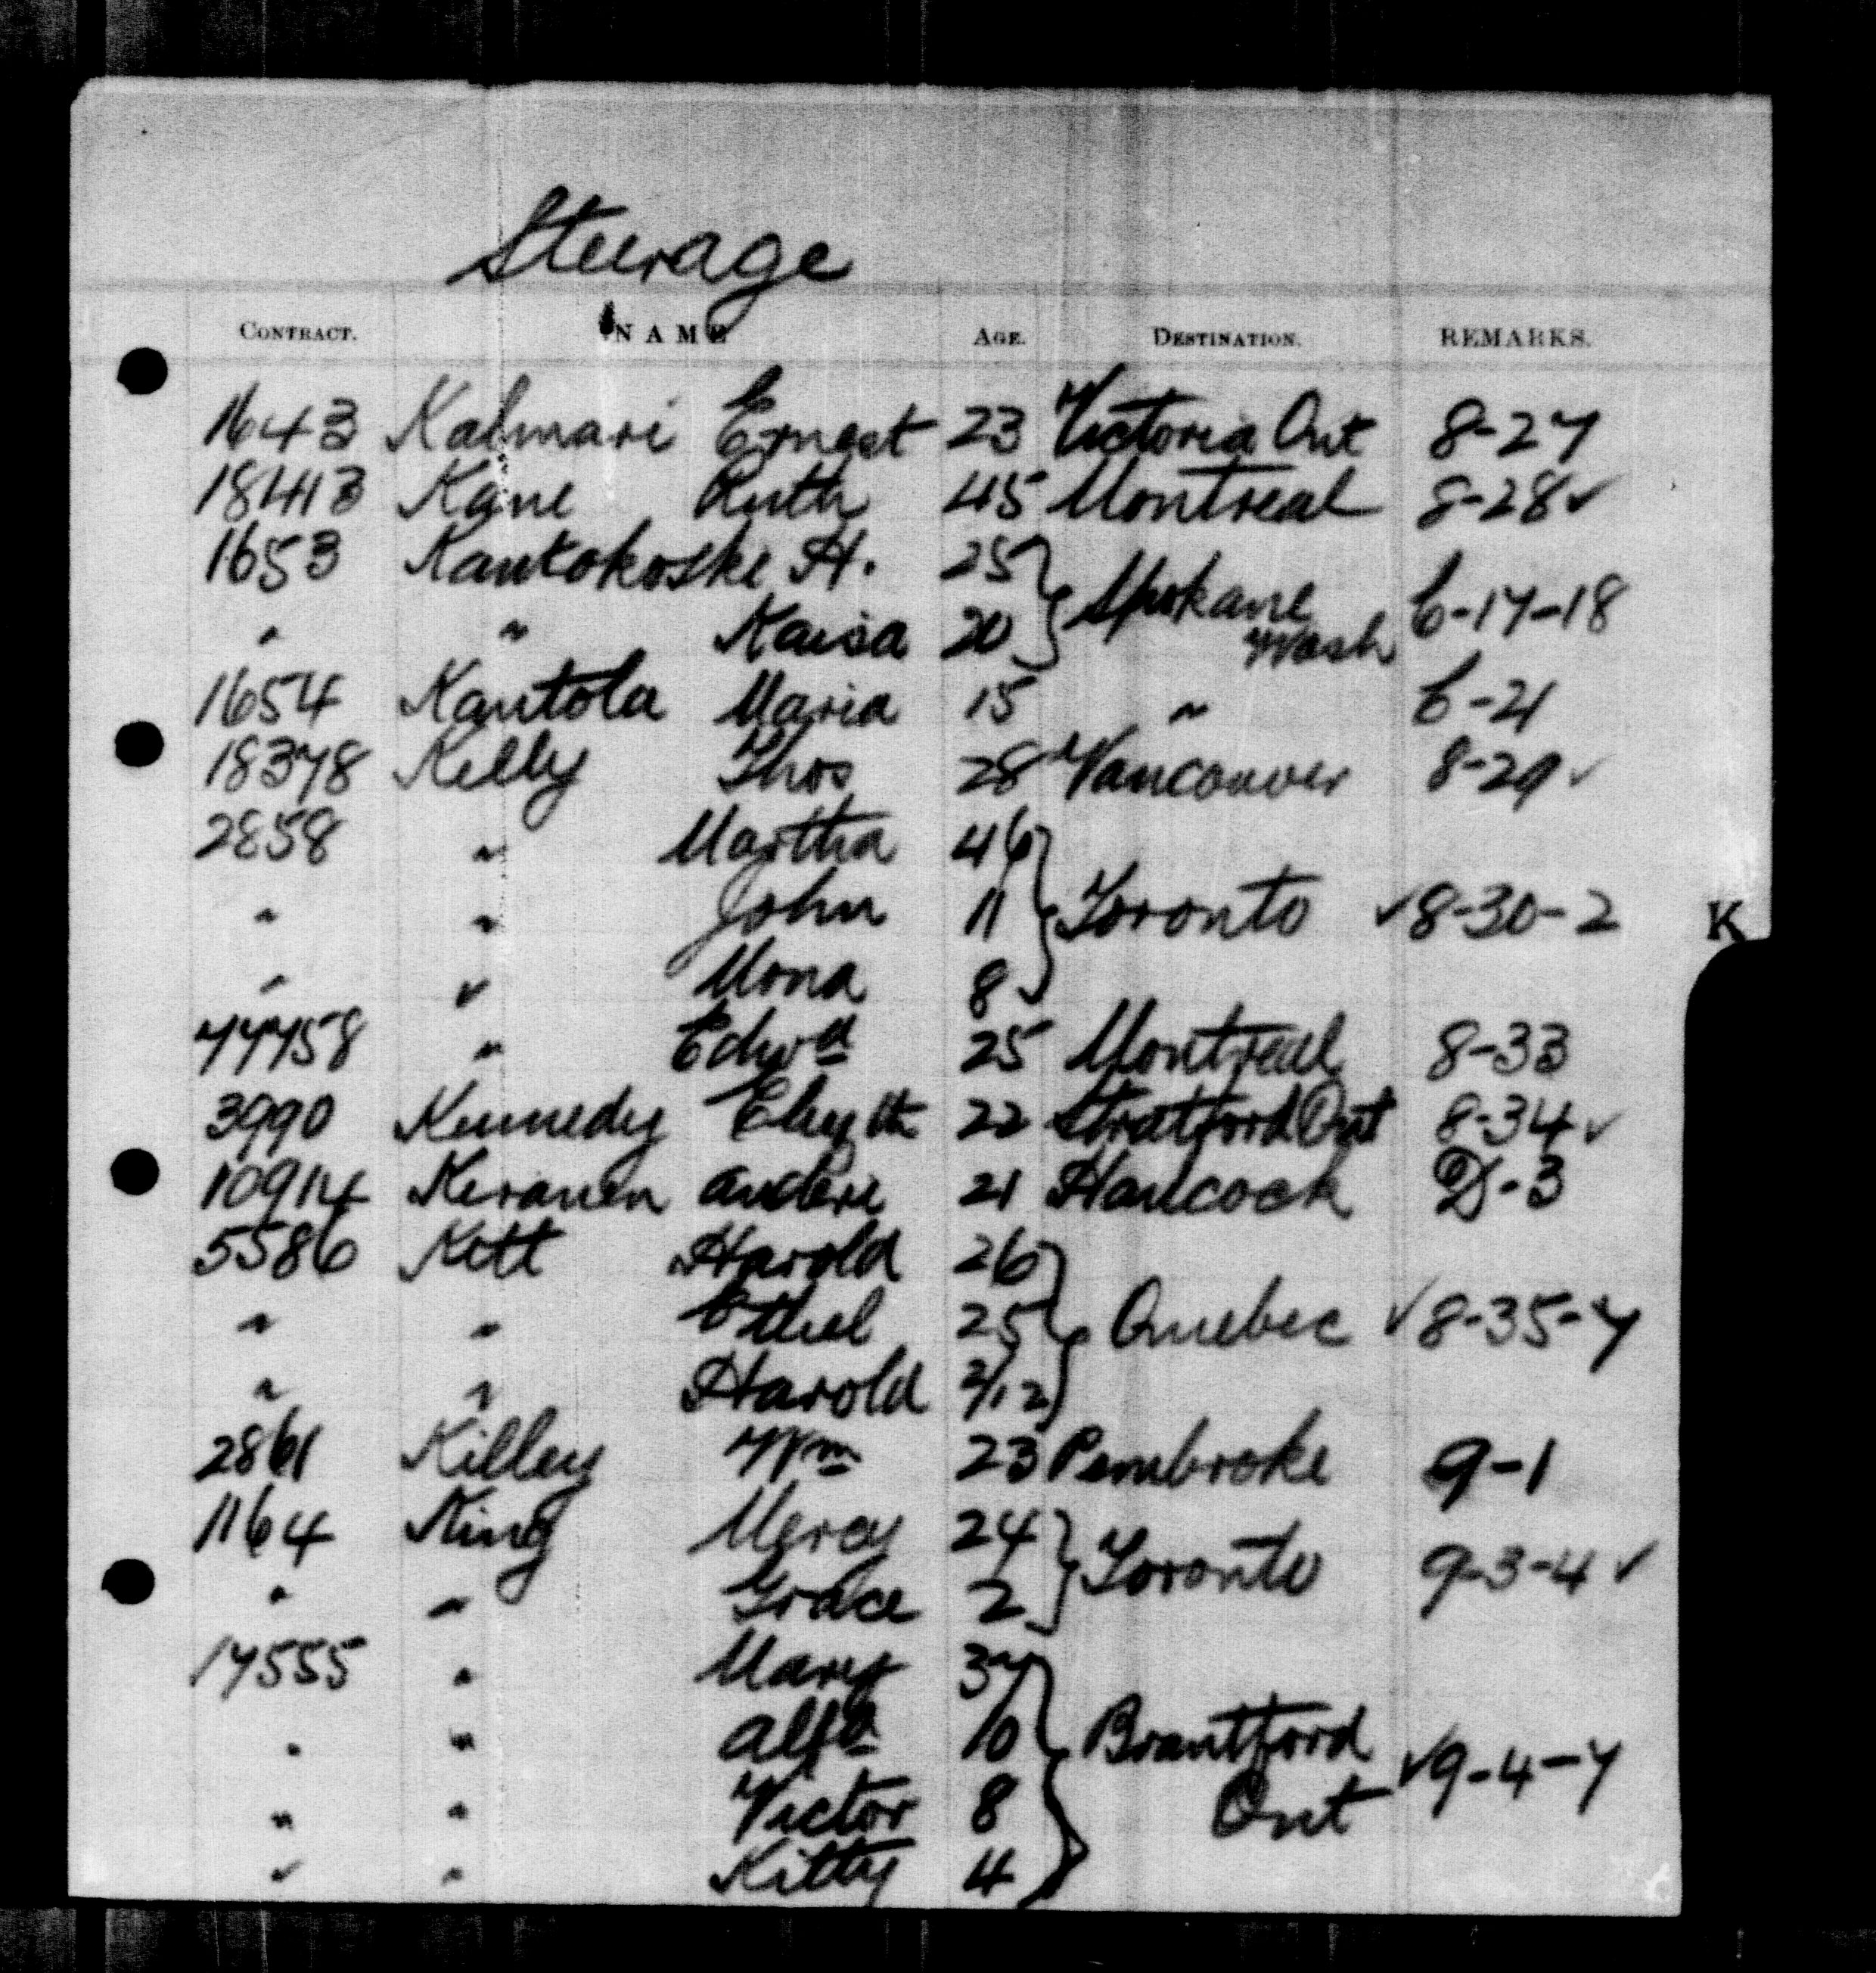 Steerage
CONTRACT. NAME AGE. DESTINATION. REMARKS.
1643 Kalmari Ernest 23 Victoria Ont 8-27
18413 Kane Ruth 45 Montreal 8-28 ✓
1653 Kantokoski H. 25
" " Kaisa 20 Spokane Wash 6-17-18
1654 Kantola Maria 15 " 6-21
18378 Kelly Thos 28 Vancouver 8-29 ✓
2858 " Martha 46
" " John 11 Toronto ✓ 8-30-2 K
" " Mona 8
77758 " Edwd 25 Montreal 8-33
3990 Kennedy 22 Stratford Ont 8-34 ✓
10914 Keranen 21 Hancock D-3
5586 Kett Harold 26
" " Ethel 25 Quebec ✓ 8-35-7
" " Harold 2/12
2861 Killey Wm 23 Pembroke 9-1
1164 King Mercy 24
" " Grace 2 Toronto 9-3-4 ✓
17555 " Mary 37
" " Alfd 10 Brantford
" " Victor 8 Ont ✓ 9-4-7
" " Kitty 4